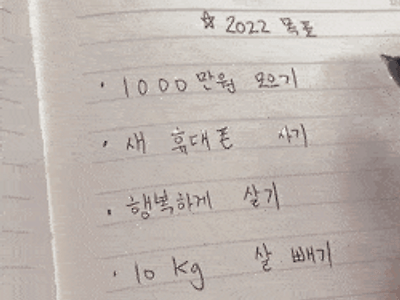 ☆ 2022 목표
· 1000만원 모으기
· 새 휴대폰 사기
· 행복하게 살기
· 10 kg 살 빼기